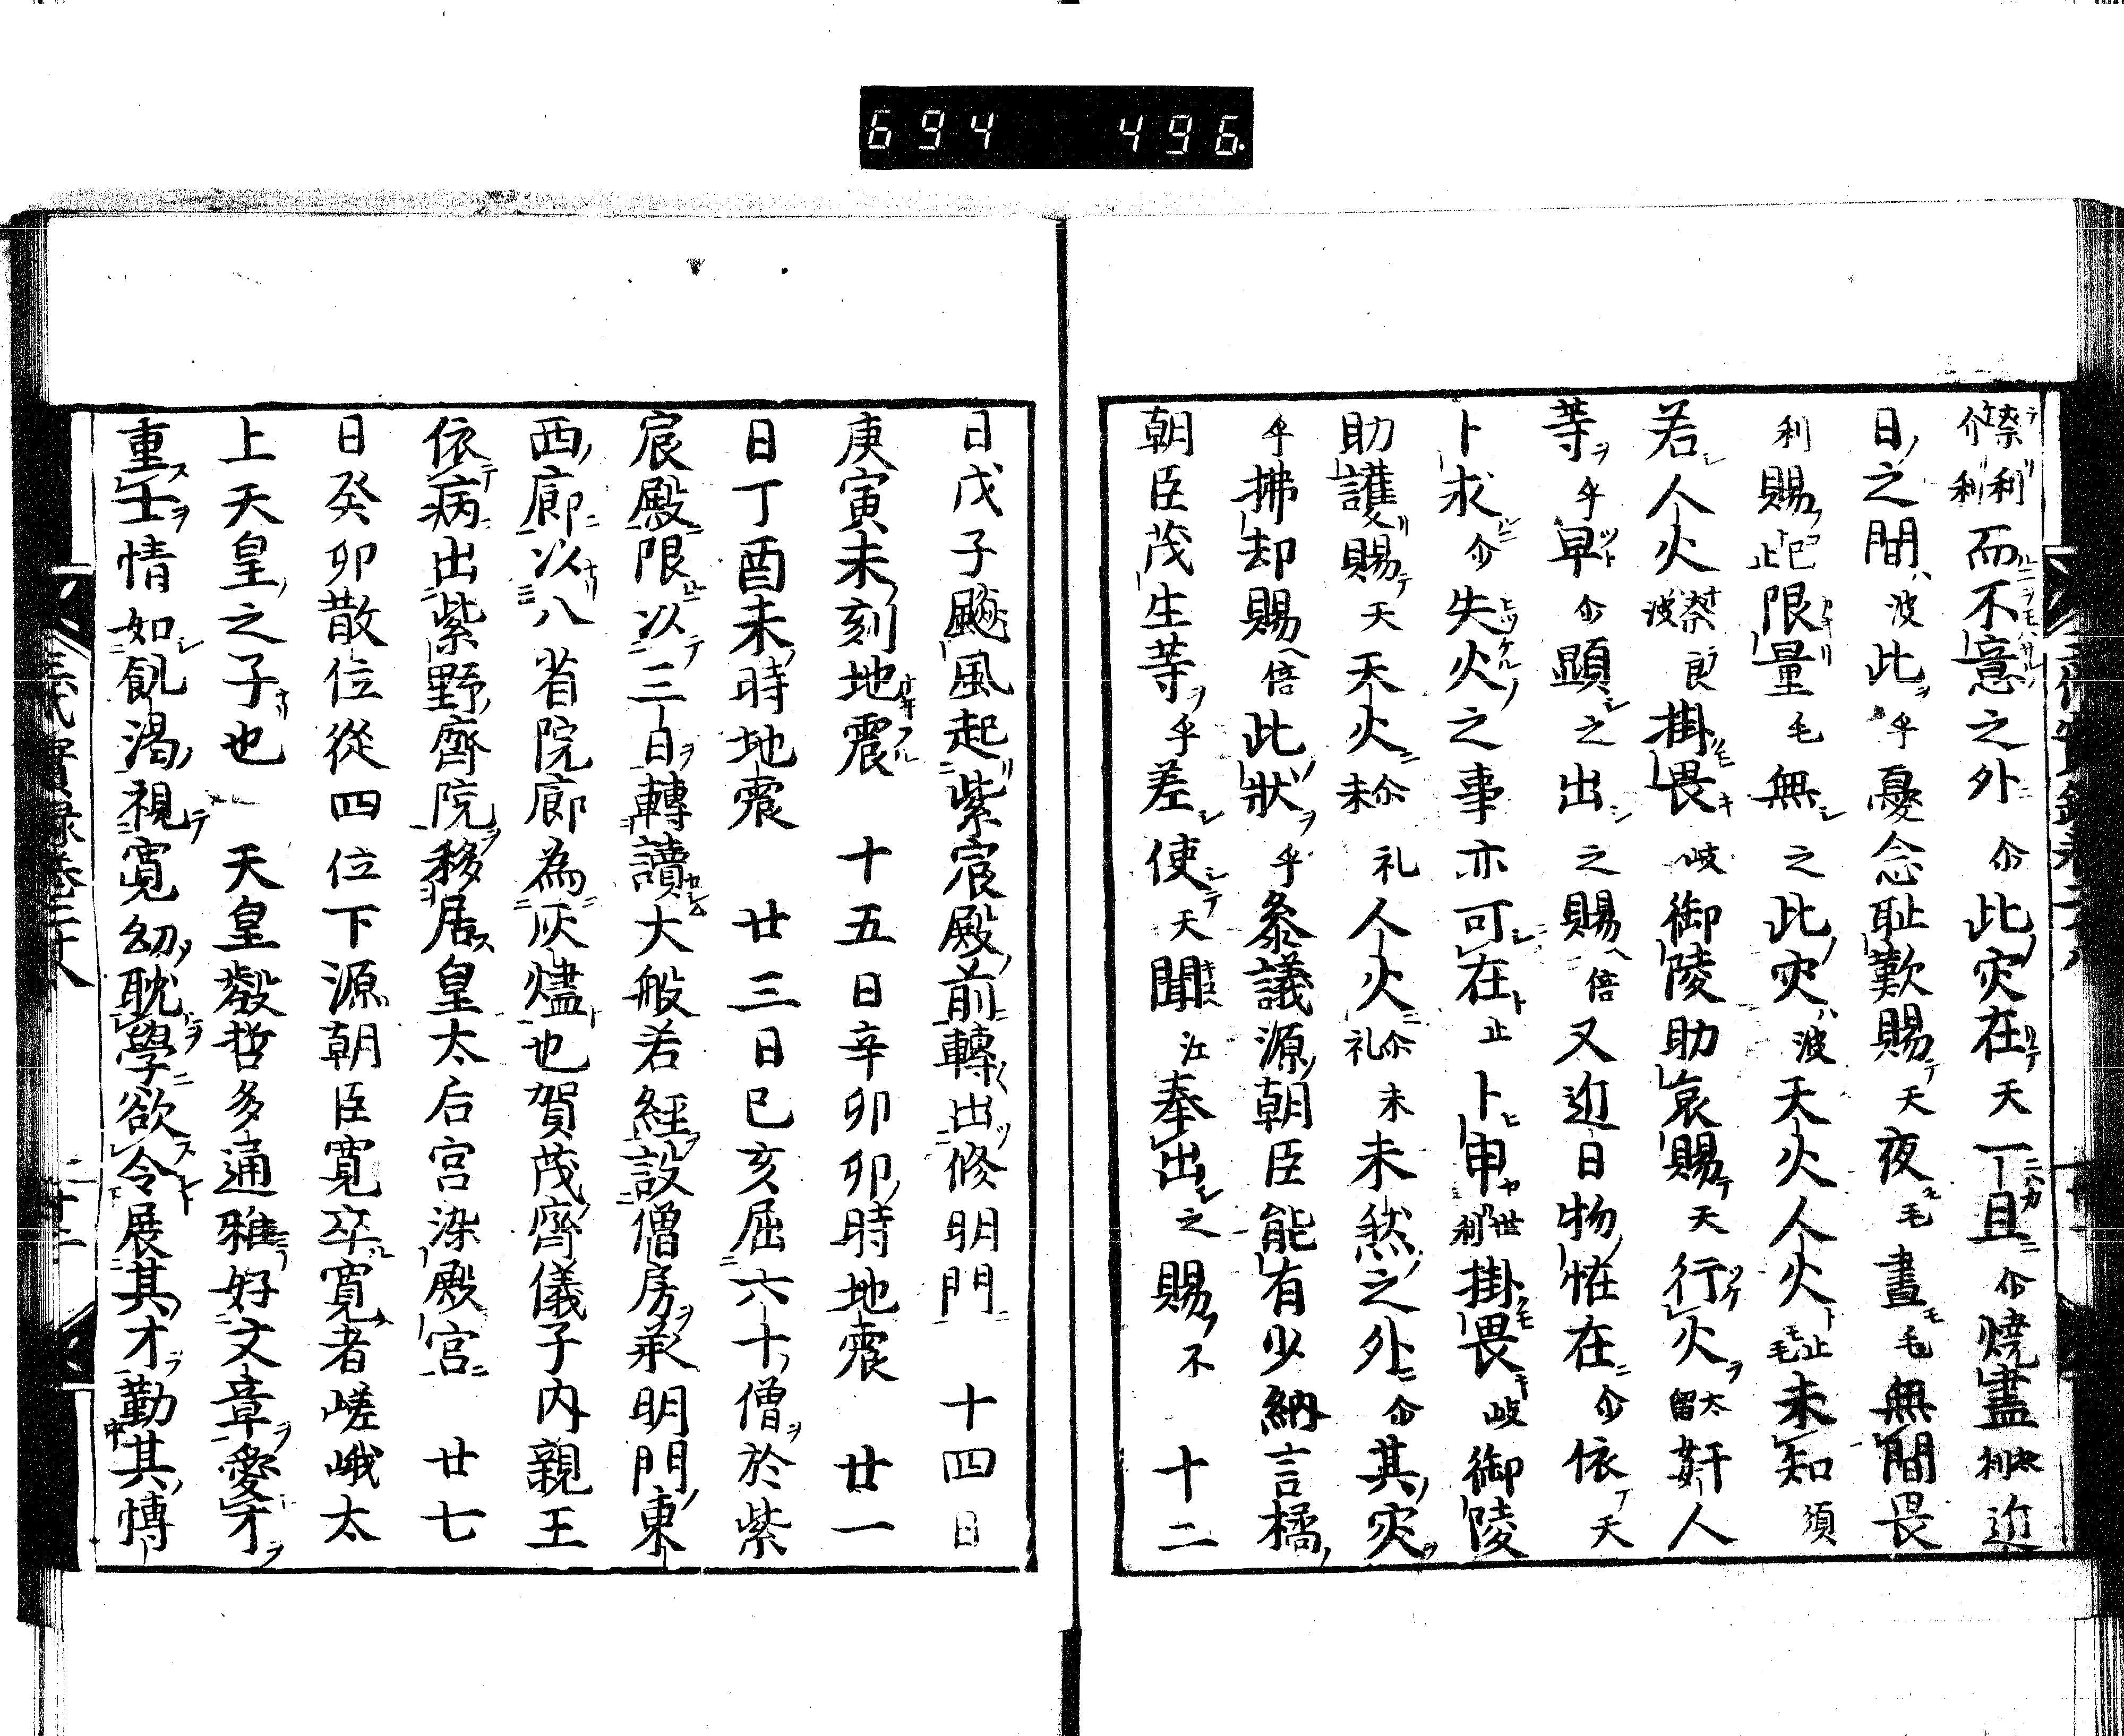 694 496
介利而不意之外尓此灾在天一旦尓燒盡太利近
日之間波此乎憂念耻歎賜天夜毛晝毛無間畏
利賜己止限量毛無之此灾波天火人火止毛未知須
若人火奈良波掛畏岐御陵助哀賜天行火太留姧人
等乎早尓顯之出之賜倍又近日物恠在尓依天
卜求尓失火之事亦可在止卜申世利掛畏岐御陵
助護賜天天火尓未礼人火尓未礼未然之外尓其灾
乎拂却賜倍此狀乎叅議源朝臣能有少納言橘
朝臣茂生等乎差使天聞江奉出之賜不 十二
日戊子飈風起紫宸殿前轉出修明門 十四日
庚寅未刻地震 十五日辛卯卯時地震 廿一
日丁酉未時地震 廿三日己亥屈六十僧於紫
宸殿限以三日轉讀大般若經設僧房承明門東
西廊以八省院廊為灰燼也賀茂齊儀子内親王
依病出紫野齊院移居皇太后宮染殿宮 廿七
日癸卯散位從四位下源朝臣寛卒寛者嵯峨太
上天皇之子也 天皇叡哲多通雅好文章愛才
重士情如飢渴視寛幼耽學欲令展其才勤其愽
三代實録卷二十八